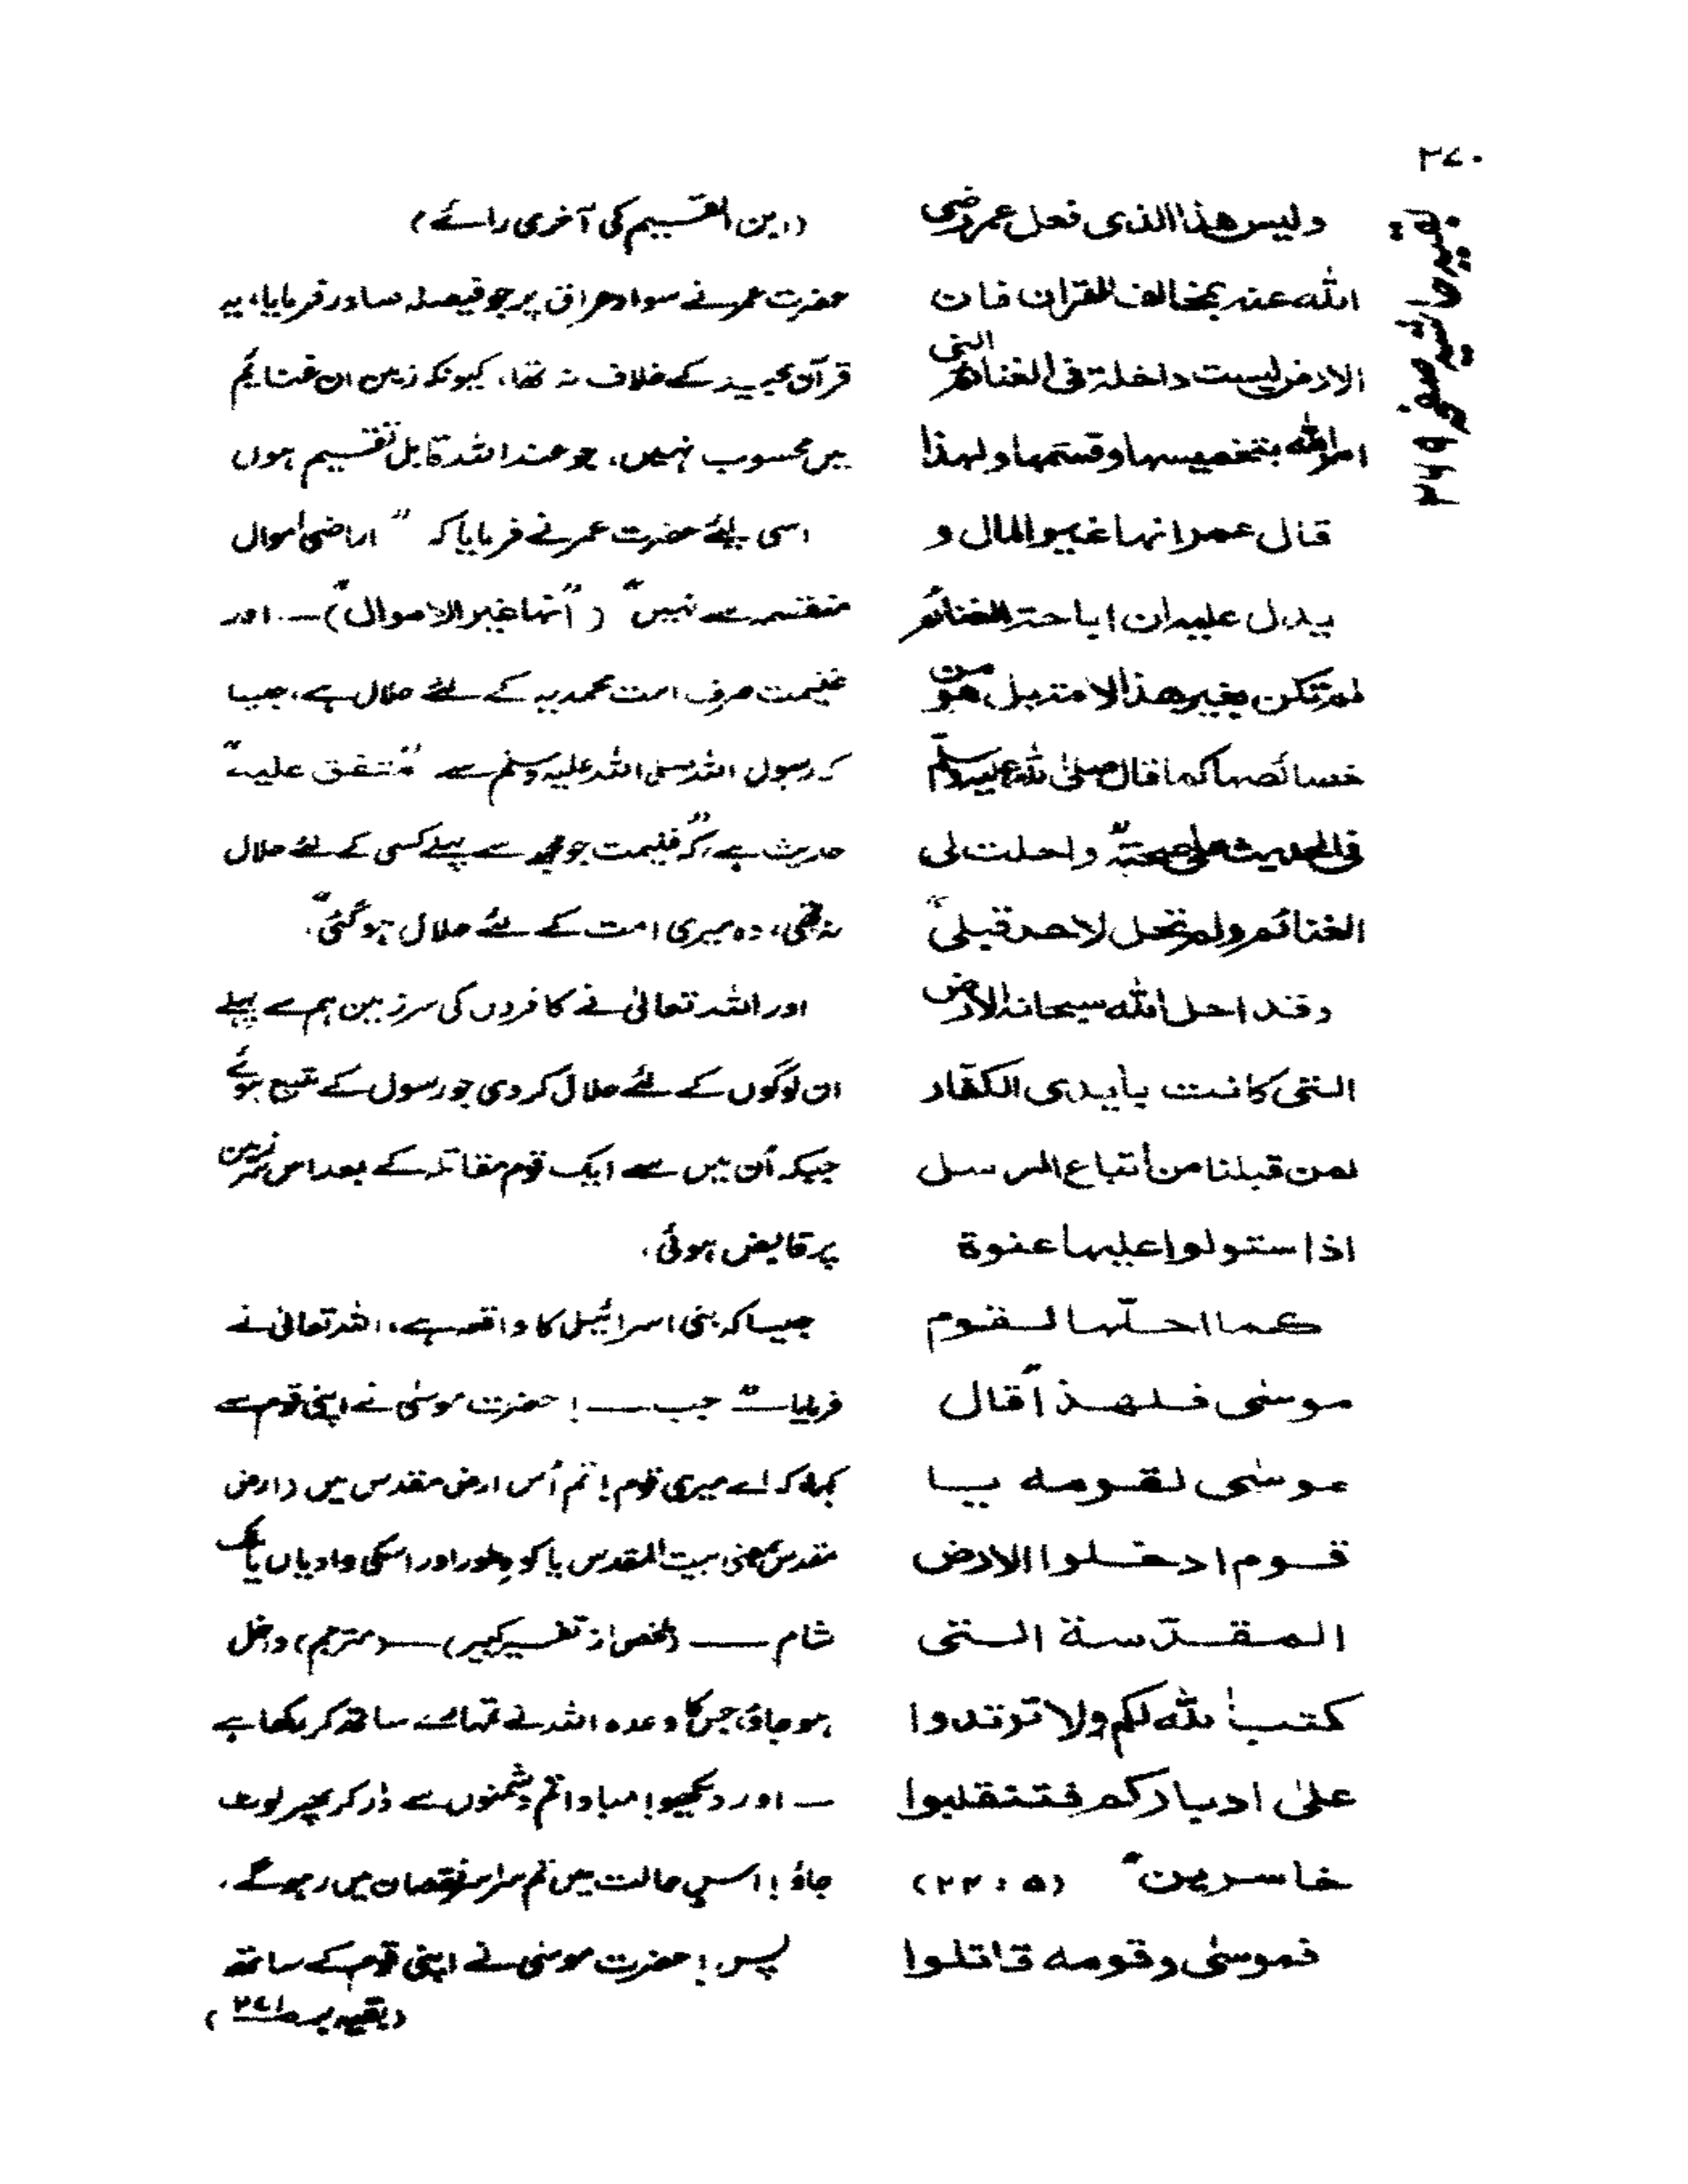 ۲۷۰
بقیہ حاشیہ صفحہ ۲۶۹
ولیس هذا الذی فعل عمر رضی
الله عنه بمخالف للقران فان
الارض لیست داخلة فی الغنائم التی
امر الله بتخمیسها وقسمتها ولهذا
قال عمر انها غیر المال و
یدل علیه ان اباحة الغنائم
لم تکن بغیر هذا الامة بل هو من
خصائصها کما قال صلی الله علیه وسلم
فی الحدیث علی صحته "واحلت لی
الغنائم ولم تحل لاحد قبلی"
وقد احل الله سبحانه الارض
التی کانت بأیدی الکفّار
لمن قبلنا من أتباع الرسل
اذا ستولوا علیها عنوة
کما احلّها لقوم
موسٰی فلهذا "قال
موسٰی لقومه یا
قوم ادخلوا الارض
المقدّسة التی
کتب الله لکم ولا ترتدوا
علیٰ ادبارکم فتنقلبوا
خاسرین" (۵ : ۲۴)
فموسٰی وقومه قاتلوا
(ابن القسیم کی آخری رائے)
حضرت عمر نے سواد عراق پر جو فیصلہ صادر فرمایا، یہ
قرآن مجید کے خلاف نہ تھا، کیونکہ زمین ان غنائم
میں محسوب نہیں، جو عند اللہ قابل تقسیم ہوں
اسی لئے حضرت عمر نے فرمایا کہ " اراضی اموال
منقسمہ سے نہیں" ("انها غیر الاموال")ـــ اور
غنیمت صرف امت محمدیہ کے لئے حلال ہے، جیسا
کہ رسول اللہ صلی اللہ علیہ وسلم سے "متفق علیہ"
حدیث ہے، کہ "غنیمت جو مجھ سے پہلے کسی کے لئے حلال
نہ تھی، وہ میری امت کے لئے حلال ہو گئی"۔
اور اللہ تعالیٰ نے کافروں کی سرزمین ہم سے پہلے
ان لوگوں کے لئے حلال کر دی جو رسول کے متبع ہوئے
جبکہ اُن میں سے ایک قوم مقاتلہ کے بعد اس سرزمین
پر قابض ہوئی،
جیسا کہ بنی اسرائیل کا واقعہ ہے، اللہ تعالیٰ نے
فرمایا ـــ" جب ـــ! حضرت موسٰی نے اپنی قوم سے
کہا کہ اے میری قوم! تم اُس ارض مقدس میں (ارض
مقدس بمعنی بیت المقدس یا کوہ طور اور اسکی وادیاں یا ملک
شام ـــ (ملخص از تفسیر کبیر) ـــ (مترجم) داخل
ہو جاؤ، جس کا وعدہ اللہ نے تمہارے ساتھ کر رکھا ہے
ـــ اور دیکھیو! مبادا تم دشمنوں سے ڈر کر پھر لوٹ
جاؤ! اس حالت میں تم سراسر نقصان میں رہو گے،
پس! حضرت موسٰی نے اپنی قوم کے ساتھ
(بقیہ بر ص ۲۷۱)